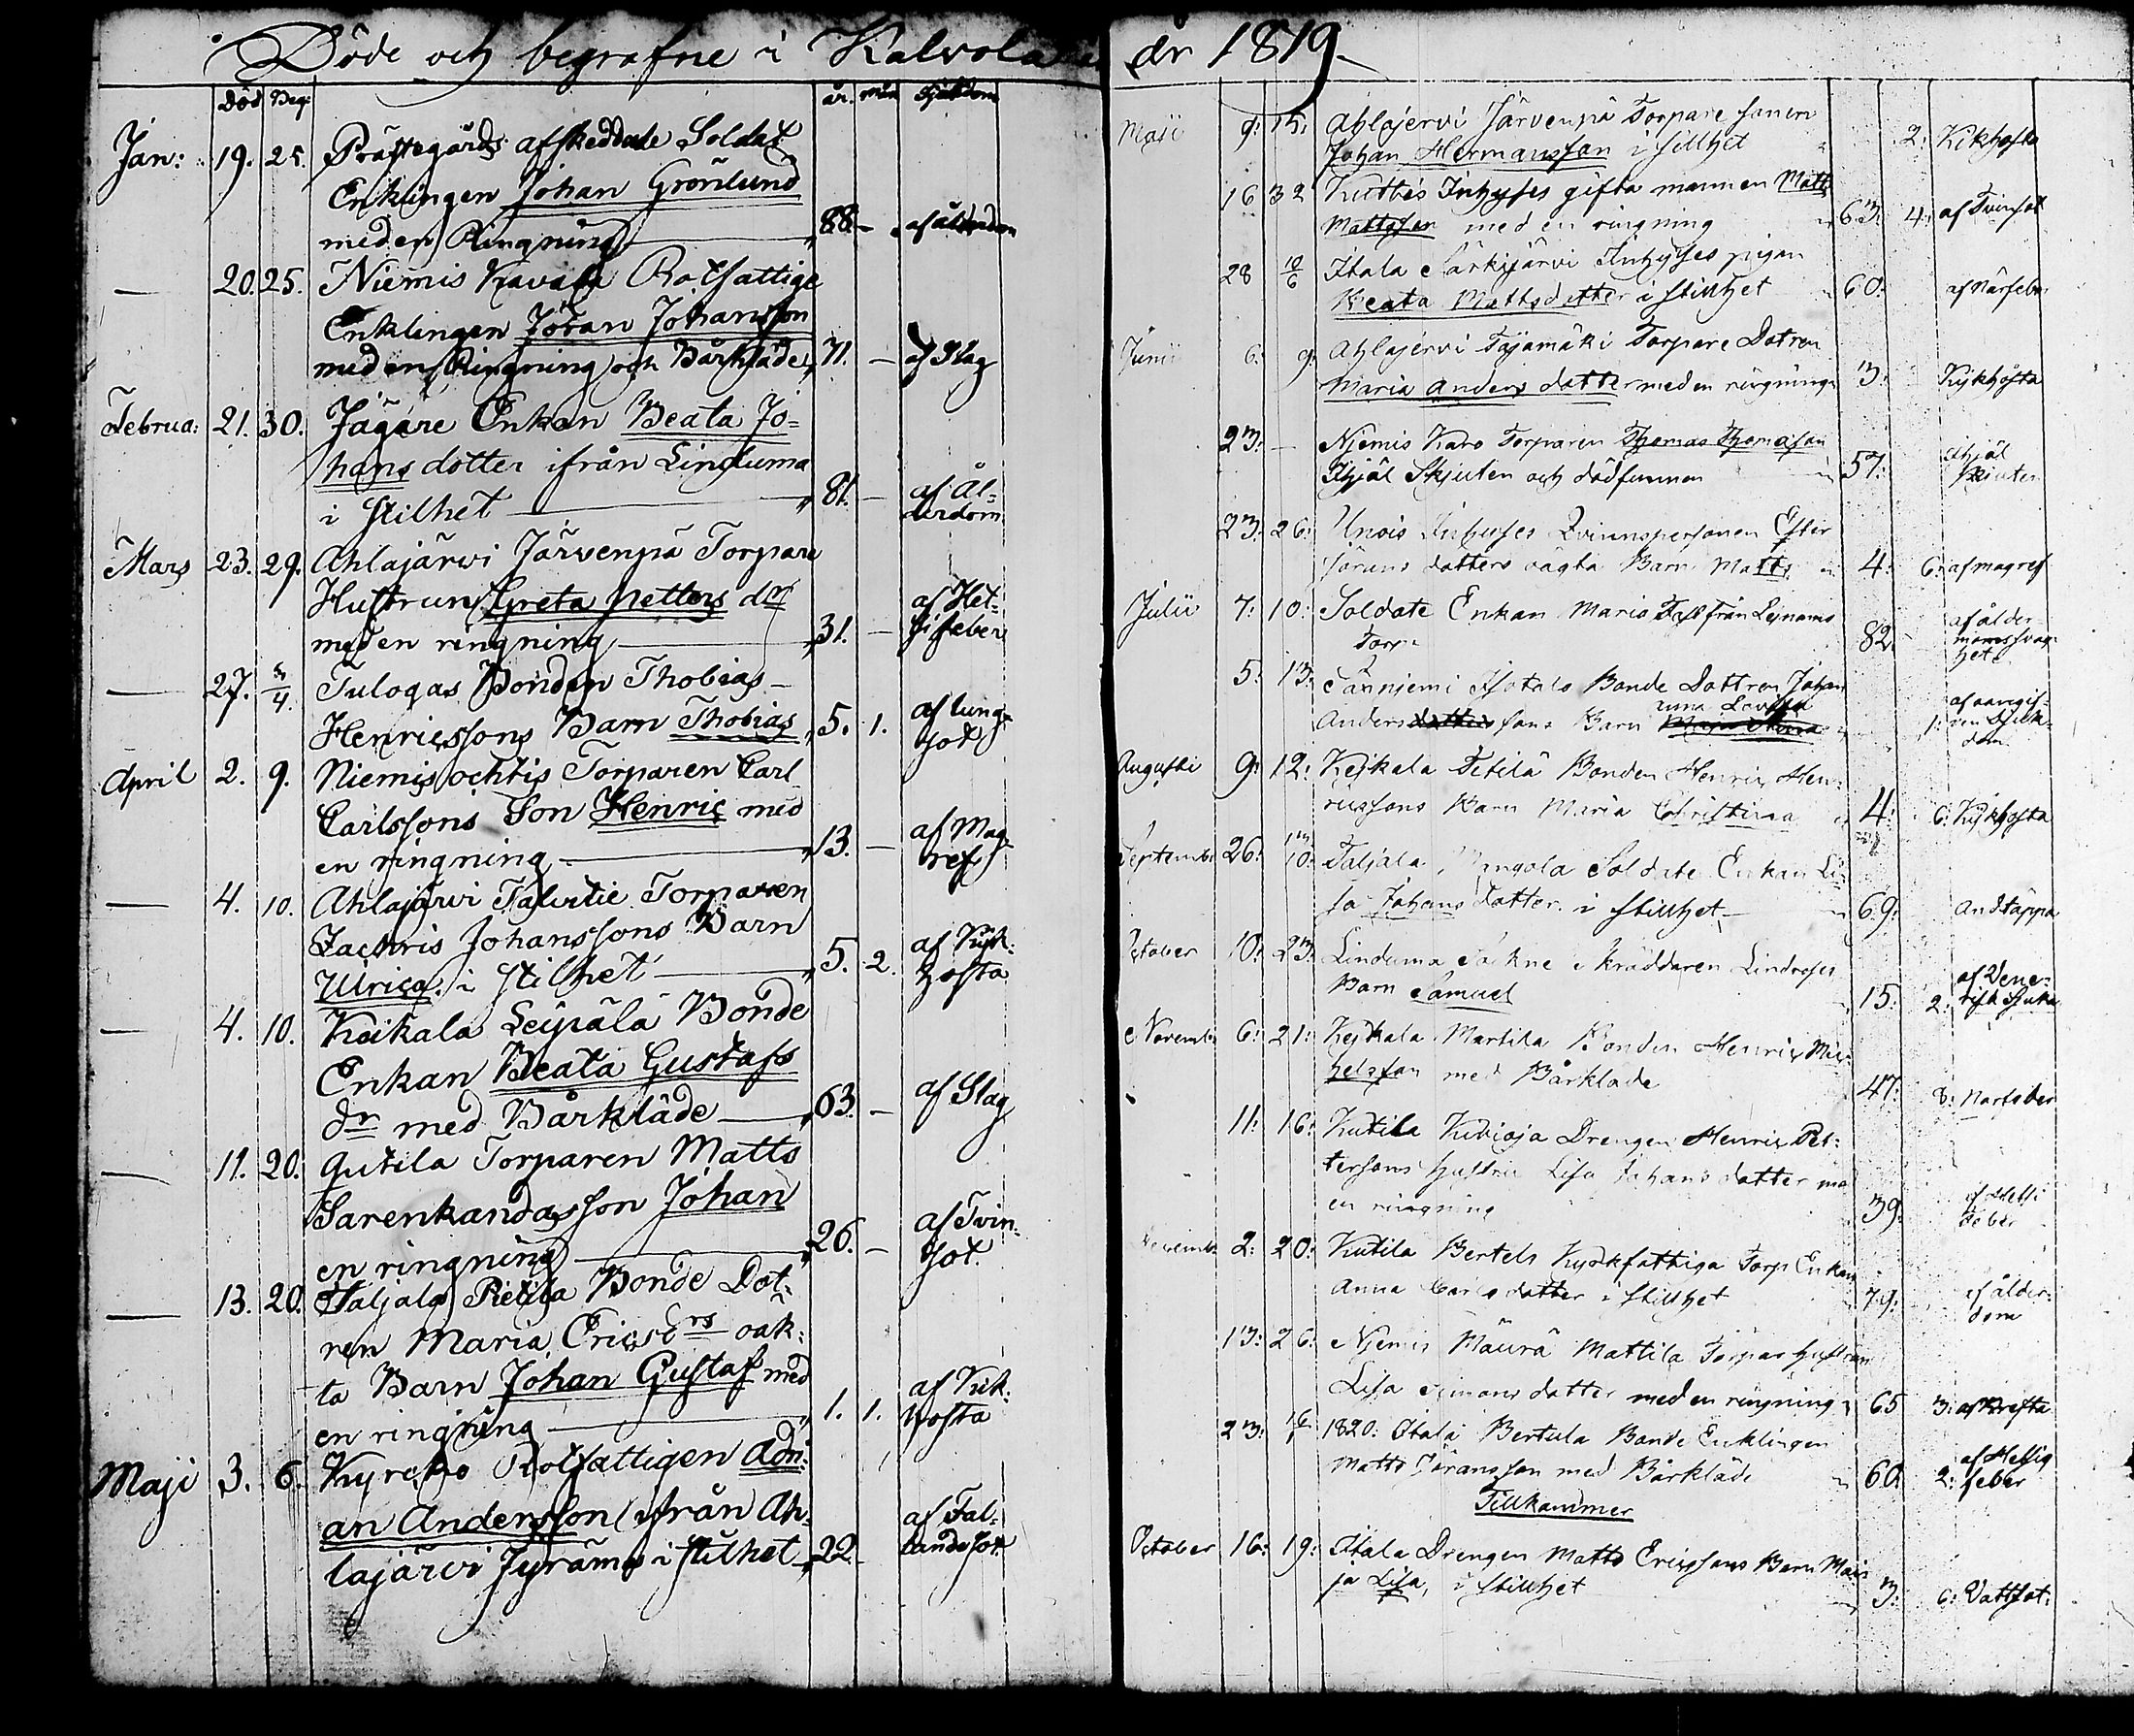 Döde och begrafne i Kalvola år 1819
Död Beg: år. mån Sjukdom
Jan: 19. 25. Prästegårds afskeddade Soldat
Enklingen Johan Grönlund
med en Ringning 88. – af ålderdom
— 20. 25. Niemis Kavala Rotfattige
Enklingen Jöran Johansson
med en Ringning och Bårkläde 71. – af Slag
Februa: 21. 30. Jägare Enkan Beata Jo=
hans dotter ifrån Lintuma
i stilhet 81. – af Ål=
derdom
Mars 23. 29. Ahlajärvi Järvenpä Torpare
Hustrun Greta Petters dr
med en ringning 31. – af Het=
sifeber
— 27. 5/4. Tulogas Bonden Thobias
Henricssons Barn Thobias 5. 1. af lung=
sot
April 2. 9. Niemis ochtis Torparen Carl
Carlssons Son Henric med
en ringning 13. – af Mag=
ref
— 4. 10. Ahlajärvi Talvitie Torparen
Zachris Johanssons Barn
Ulrica i stilhet 5. 2. af Kik=
hosta
— 4. 10. Keikala Seipälä Bonde
Enkan Beata Gustafs
dr med Bårkläde 63. – af Slag
— 11. 20. Qutila Torparen Matts
Sarenkandas son Johan
en ringning 26. – af Tvin=
sot.
— 13. 20. Taljala Pietila Bonde Dot=
ren Maria Erics drs oäk=
ta Barn Johan Gustaf med
en ringning 1. 1. af Kik=
hosta
Maji 3. 6. Kyrcko Rotfattigen Adri=
an Andersson ifrån Ah=
lajärvi Jyrämö i stilhet 22. af Fal=
landesot
Maii 9: 15: Ahlajervi Järvenpä Torpare sonen
Johan Hermansson i stillhet 2: Kikhosta
16 32 Inhyses gifta mannen Matts
Mattsson med en ringning 63: 4: af Tvinsot
28 10/6 Itala Särkijärvi Inhyses pigan
Beata Mattsdotter i stillhet 60: af Närfeber
Junii 6: 9: Ahlajervi Tajamäki Torpare Dotren
Maria Anders dotter med en ringning 3: Kikhosta
23: – Njemis Karo Torparen Thomas Thomasson
Ihjäl Skjuten och dödfunnen 57: Ihjäl
skjuten
23: 26: Unois Inhyses Qvinnspersonen Ester
Jörans dotters oägta Barn Matts 4: 6: af magref
Julii 7: 10: Soldate Enkan Maria Fast från Lejnams
Torp 82. af ålder
domssvag=
het
5: 13: Sänniemi Hotals Bonde Dottren Johan
Anders dotter sons Barn Anna Lovisa 1: af oangif=
ven Sjuk=
dom
Augusti 9: 12: Kejkala Tetilä Bonden Henric Hen=
ricssons Barn Maria Christina 4: 6: Kikhosta
Septemb: 26: 10: Taljala Mangola Soldate Enkan Li=
sa Johans dotter i stillhet 69: Andtäppa
October 10: 23: Linduma Sockne skräddaren Lindroses
Barn Samuel 15: 2: af Vene=
risk Sjuka
Novemb: 6: 21: Kejkala Martila Bonden Henric Mic=
helsson med Bårkläde 47: 8: Närfeber
11: 16: Kutila Kuvioja Drengen Henric Pet=
tersons hustru Lisa Johans dotter med
en ringning 39: af Hetsi
feber
2: 20: Kutila Bertels Kyrkfattiga Torp Enkan
Anna Carls dotter i stillhet 79: af ålder=
dom
13: 26: Njemis Mäurä Mattila Torpar hustrun
Lisa Simons dotter med en ringning 65 3: af Kräfta
23: 16/1 1820: Itala Bertula Bonde Enklingen
Matts Jöransson med Bårkläde 60: 2: af Hetsig
feber
Tillkommer
October 16: 19: Itala Drengen Matts Ericssons Barn Mari=
ja Lisa, i stillhet 3: 6: Vattsot: